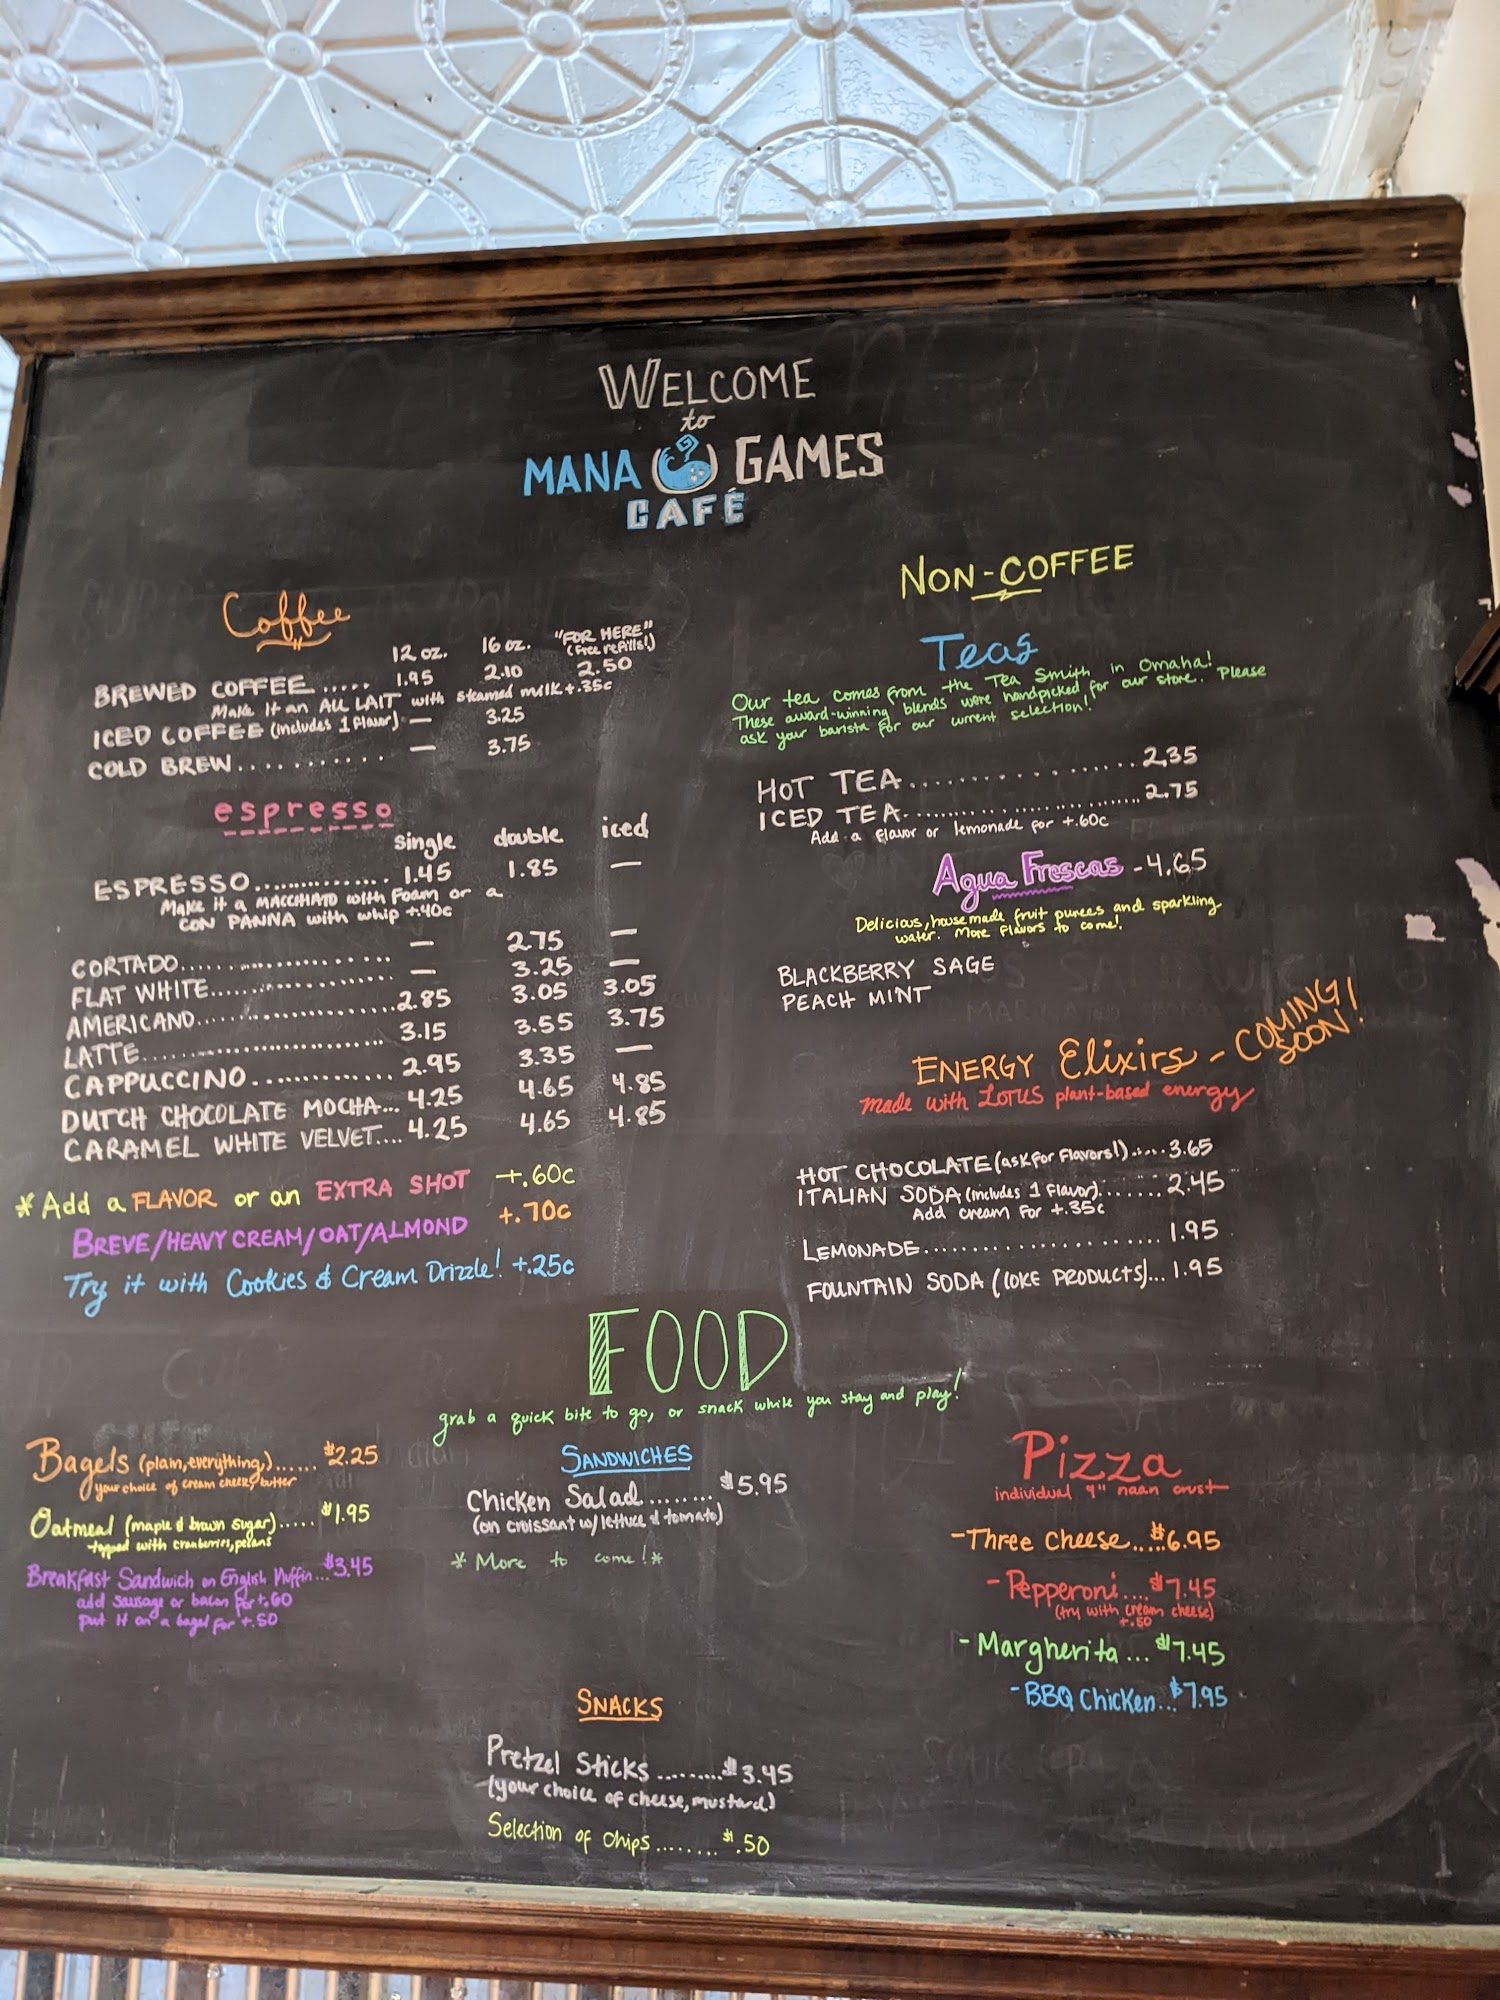 WELCOME
to
MANA GAMES
CAFÉ
Coffee
12 oz. 16 oz. "FOR HERE"
(free refills!)
BREWED COFFEE ..... 1.95 2.10 2.50
Make it an AU LAIT with steamed milk +.35c
ICED COFFEE (includes 1 flavor) — 3.25
COLD BREW........... — 3.75
espresso
single double iced
ESPRESSO............... 1.45 1.85 —
Make it a MACCHIATO with Foam or a
CON PANNA with whip +.40c
CORTADO................... — 2.75 —
FLAT WHITE................ — 3.25 —
AMERICANO................ 2.85 3.05 3.05
LATTE...................... 3.15 3.55 3.75
CAPPUCCINO.............. 2.95 3.35 —
DUTCH CHOCOLATE MOCHA... 4.25 4.65 4.85
CARAMEL WHITE VELVET.... 4.25 4.65 4.85
* Add a FLAVOR or an EXTRA SHOT +.60c
BREVE/HEAVY CREAM/OAT/ALMOND +.70c
Try it with Cookies & Cream Drizzle! +.25c
NON-COFFEE
Teas
Our tea comes from the Tea Smith in Omaha!
These award-winning blends were handpicked for our store. Please
ask your barista for our current selection!
HOT TEA..................... 2.35
ICED TEA..................... 2.75
Add a flavor or lemonade for +.60c
Agua Frescas - 4.65
Delicious, housemade fruit purees and sparkling
water. More flavors to come!
BLACKBERRY SAGE
PEACH MINT
ENERGY Elixirs - COMING SOON!
made with LOTUS plant-based energy
HOT CHOCOLATE (ask for flavors!)..... 3.65
ITALIAN SODA (includes 1 flavor)....... 2.45
Add cream for +.35c
LEMONADE...................... 1.95
FOUNTAIN SODA (COKE PRODUCTS)... 1.95
FOOD
grab a quick bite to go, or snack while you stay and play!
Bagels (plain, everything,)...... $2.25
your choice of cream cheese, butter
Oatmeal (maple & brown sugar)..... $1.95
topped with cranberries, pecans
Breakfast Sandwich on English Muffin... $3.45
add sausage or bacon for +.60
put it on a bagel for +.50
SANDWICHES
Chicken Salad ........ $5.95
(on croissant w/ lettuce & tomato)
* More to come! *
SNACKS
Pretzel Sticks ......... $3.45
(your choice of cheese, mustard)
Selection of chips........ $.50
Pizza
individual 9" naan crust
- Three Cheese... $6.95
- Pepperoni.... $7.45
(try with cream cheese)
+.50
- Margherita... $7.45
- BBQ Chicken... $7.95